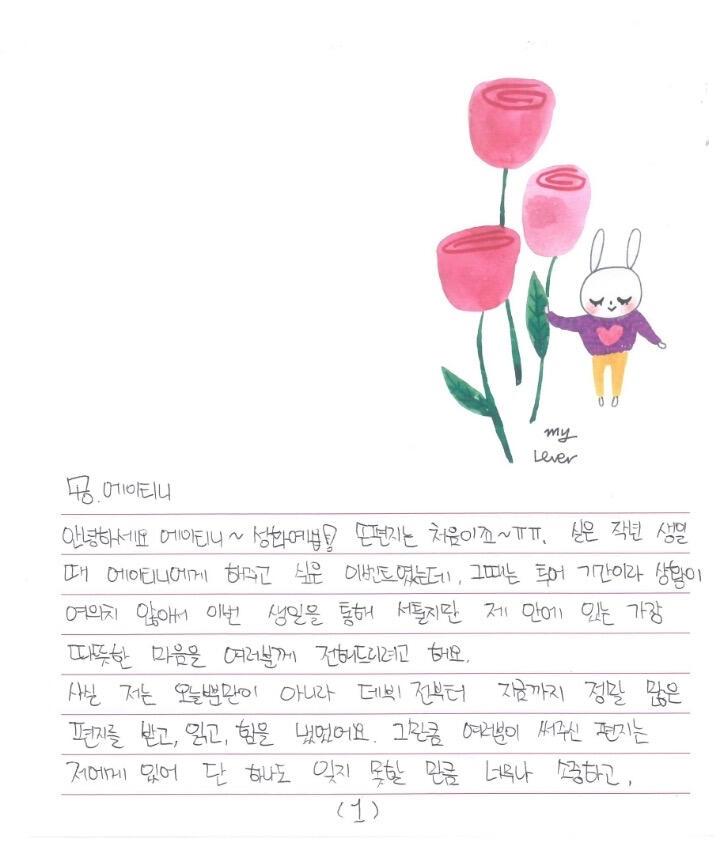 my
Lever
TO. 에이티니
안녕하세요 에이티니~ 성화예요! 손편지는 처음이죠~ㅠㅠ. 실은 작년 생일
때 에이티니에게 해주고 싶은 이벤트였는데, 그때는 투어 기간이라 상황이
여의치 않아서 이번 생일을 통해 서툴지만 제 안에 있는 가장
따뜻한 마음을 여러분께 전해드리려고 해요.
사실 저는 오늘뿐만이 아니라 데뷔 전부터 지금까지 정말 많은
편지를 받고, 읽고, 힘을 냈었어요. 그만큼 여러분이 써주신 편지는
저에게 있어 단 하나도 잊지 못할 만큼 너무나 소중하고,
(1)